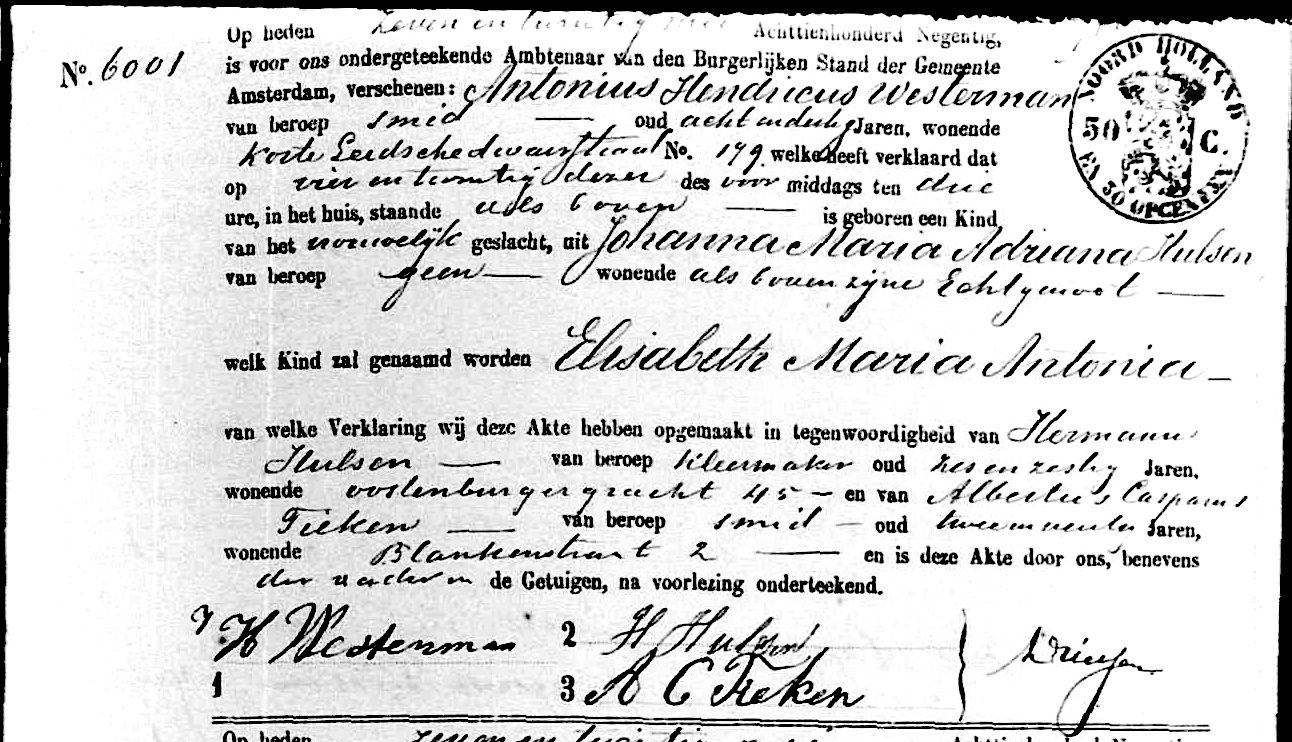 Op heden zeven en twintig mei Achttienhonderd Negentig,
No. 6001
is voor ons ondergeteekende Ambtenaar van den Burgerlijken Stand der Gemeente
Amsterdam, verschenen: Antonius Hendricus Westerman
van beroep smid — oud acht en dertig Jaren, wonende
Korte Leidschedwarsstraat No. 179 welke heeft verklaard dat
op vier en twintig dezer des voor middags ten drie
ure, in het huis, staande als boven — is geboren een Kind
van het vrouwelijk geslacht, uit Johanna Maria Adriana Hulsen
van beroep geen — wonende als boven zijne Echtgenoot —
welk Kind zal genaamd worden Elisabeth Maria Antonia —
van welke Verklaring wij deze Akte hebben opgemaakt in tegenwoordigheid van Hermann
Hulsen — van beroep kleermaker oud zes en zestig Jaren,
wonende oostenburgergracht 45 — en van Albertus Casparus
Fieken — van beroep smid — oud twee en veertig Jaren,
wonende Blankenstraat 2 — en is deze Akte door ons, benevens
den vader en de Getuigen, na voorlezing onderteekend.
H Westerman 2 H Hulsen
1 3 A C Fieken
Op heden zeven en twintig
NOORD HOLLAND
50 C.
EN 30 OPCENTEN